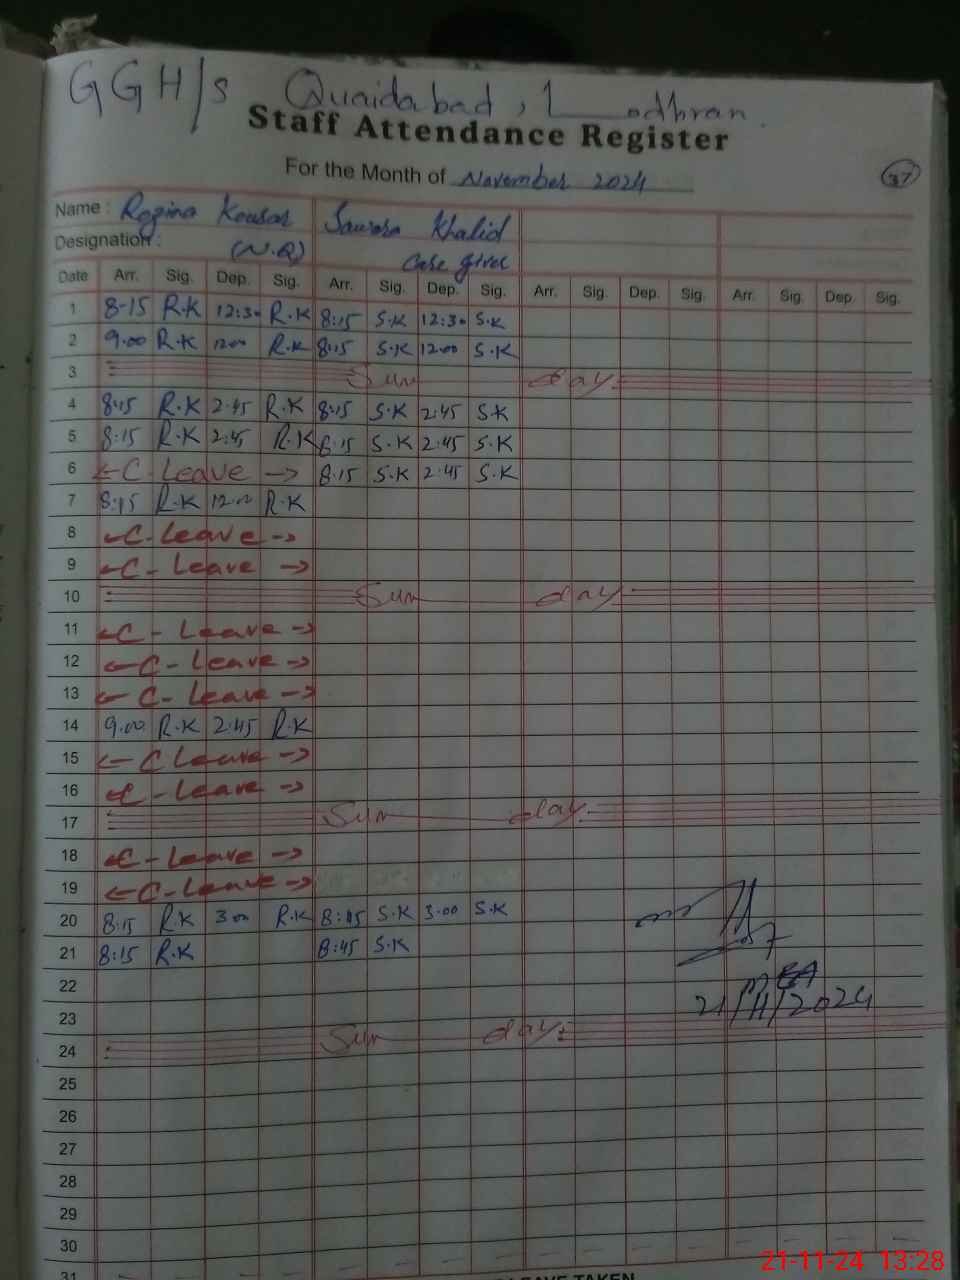 GGH/s Quaidabad, Lodhran.
Staff Attendance Register
For the Month of November 2024
37
Name : Rozina Kousar Sawera Khalid
Designation : (N.Q) Care giver
Date Arr. Sig. Dep. Sig. Arr. Sig. Dep. Sig. Arr. Sig. Dep. Sig. Arr. Sig. Dep. Sig.
1 8-15 R.K 12:30 R.K 8:15 S.K 12:30 S.K
2 9.00 R.K 12.00 R.K 8:15 S.K 12.00 S.K
3 Sun day
4 8:15 R.K 2:45 R.K 8:15 S.K 2:45 S.K
5 8:15 R.K 2:45 R.K 8:15 S.K 2:45 S.K
6 ← C - Leave → 8:15 S.K 2:45 S.K
7 8:15 R.K 12.00 R.K
8 ← C - Leave →
9 ← C - Leave →
10 Sun day
11 ← C - Leave →
12 ← C - Leave →
13 ← C - Leave →
14 9.00 R.K 2:45 R.K
15 ← C Leave →
16 ← C - Leave →
17 Sun day
18 ← C - Leave →
19 ← C - Leave →
20 8:15 R.K 3.00 R.K 8:45 S.K 3.00 S.K
21 8:15 R.K 8:45 S.K
22
21/11/2024
23
24 Sun day
25
26
27
28
29
30
21-11-24 13:28
31
LEAVE TAKEN